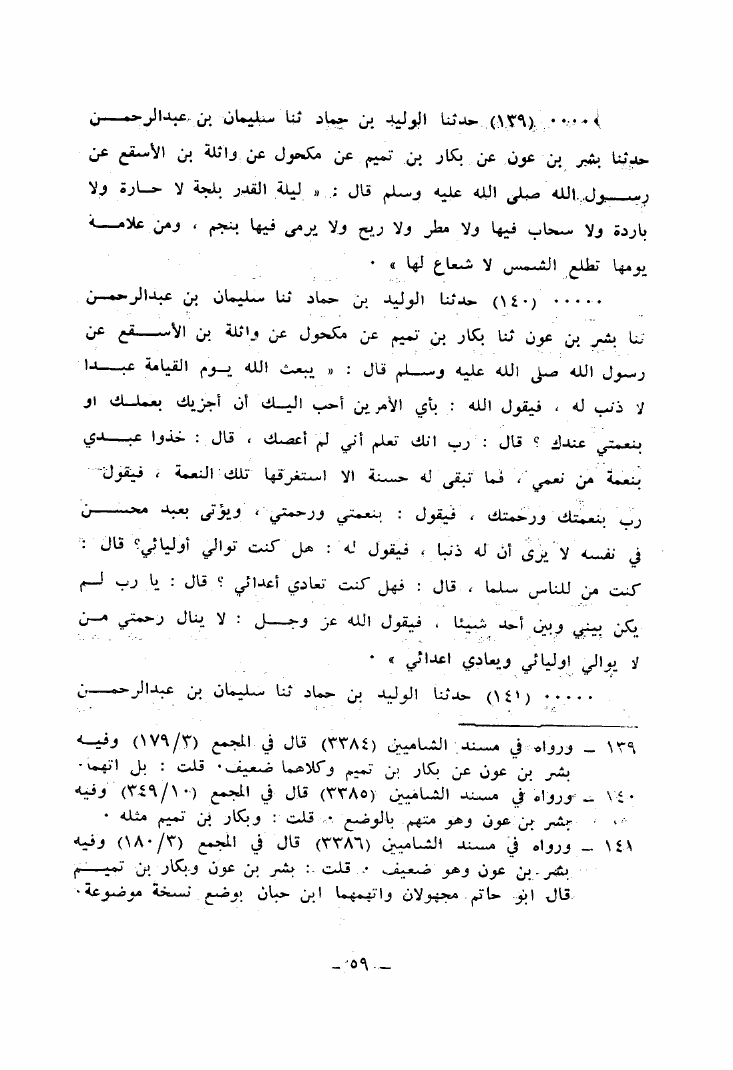 ٠٠٠٠٠ (١٣٩) حدثنا الوليد بن حماد ثنا سليمان بن عبدالرحمن
حدثنا بشر بن عون عن بكار بن تميم عن مكحول عن واثلة بن الأسقع عن
رسول الله صلى الله عليه وسلم قال : « ليلة القدر بلجة لا حارة ولا
باردة ولا سحاب فيها ولا مطر ولا ريح ولا يرمى فيها بنجم ، ومن علامة
يومها تطلع الشمس لا شعاع لها » ٠
٠٠٠٠٠ (١٤٠) حدثنا الوليد بن حماد ثنا سليمان بن عبدالرحمن
ثنا بشر بن عون ثنا بكار بن تميم عن مكحول عن واثلة بن الأسقع عن
رسول الله صلى الله عليه وسلم قال : « يبعث الله يوم القيامة عبدا
لا ذنب له ، فيقول الله : بأي الأمرين أحب اليك أن أجزيك بعملك او
بنعمتي عندك ؟ قال : رب انك تعلم أني لم أعصك ، قال : خذوا عبدي
بنعمة من نعمي ، فما تبقى له حسنة الا استغرقها تلك النعمة ، فيقول
رب بنعمتك ورحمتك ، فيقول : بنعمتي ورحمتي ، ويؤتى بعبد محسن
في نفسه لا يرى أن له ذنبا ، فيقول له : هل كنت توالي أوليائي؟ قال :
كنت من للناس سلما ، قال : فهل كنت تعادي أعدائي ؟ قال : يا رب لم
يكن بيني وبين أحد شيئا ، فيقول الله عز وجل : لا ينال رحمتي من
لا يوالي اوليائي ويعادي اعدائي » ٠
٠٠٠٠٠ (١٤١) حدثنا الوليد بن حماد ثنا سليمان بن عبدالرحمن
١٣٩ ــ ورواه في مسند الشاميين (٣٣٨٤) قال في المجمع (١٧٩/٣) وفيه
بشر بن عون عن بكار بن تميم وكلاهما ضعيف٠ قلت : بل اتهما٠
١٤٠ ــ ورواه في مسند الشاميين (٣٣٨٥) قال في المجمع (٣٤٩/١٠) وفيه
بشر بن عون وهو متهم بالوضع ٠ قلت : وبكار بن تميم مثله ٠
١٤١ ــ ورواه في مسند الشاميين (٣٣٨٦) قال في المجمع (١٨٠/٣) وفيه
بشر بن عون وهو ضعيف ٠ قلت : بشر بن عون وبكار بن تميم
قال ابو حاتم مجهولان واتهمهما ابن حبان بوضع نسخة موضوعة٠
ــ ٥٩ ــ